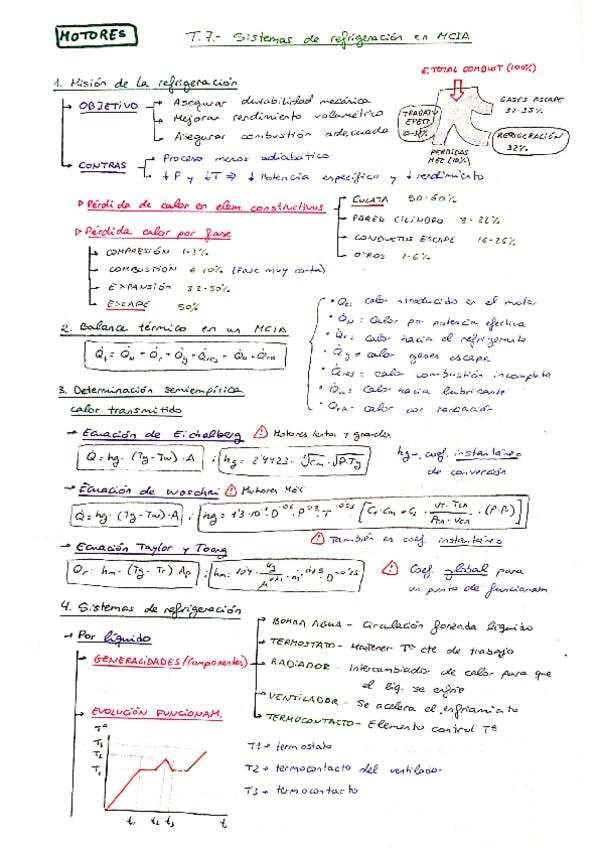 MOTORES
T.7.- Sistemas de refrigeración en MCIA
1. Misión de la refrigeración
E. TOTAL COMBUST (100%)
OBJETIVO
Asegurar durabilidad mecánica
Mejorar rendimiento volumétrico
Asegurar combustión adecuada
TRABAJO EFECT.
GASES ESCAPE
32-33%
REFRIGERACIÓN
32%
PERDIDAS
MEC (10%)
CONTRAS
Proceso menos adiabático
↓P y ↓T ⇒ ↓Potencia específica y ↓rendimiento
Pérdida de calor en elem. constructivos
CULATA 50-60%
PARED CILINDRO 8-22%
CONDUCTOS ESCAPE 16-26%
OTROS 2-6%
Pérdida calor por fase
COMPRESIÓN 1-3%
COMBUSTIÓN 6-10% (Fase muy corta)
EXPANSIÓN 32-50%
ESCAPE 50%
2. Balance térmico en un MCIA
calor introducido en el motor
calor por potencia efectiva
calor hacia el refrigerante
calor gases escape
calor combustión incompleta
calor hacia lubricante
calor por radiación
3. Determinación semiempírica
calor transmitido
Ecuación de Eichelberg
Motores lentos y grandes
Q̇ = hg · (Tg - Tw) · A
hg - coef. instantáneo
de convección
Ecuación de Woschni
Motores MEC
Q̇ = hg · (Tg - Tw) · A
También es coef. instantáneo
Ecuación Taylor y Toong
Coef. global para
un punto de funcionam.
4. Sistemas de refrigeración
Por líquido
GENERALIDADES (componentes)
BOMBA AGUA - Circulación forzada líquido
TERMOSTATO - Mantener Tª cte de trabajo
RADIADOR - Intercambiador de calor para que
el líq. se enfríe
VENTILADOR - Se acelera el enfriamiento
TERMOCONTACTO - Elemento control Tª
EVOLUCIÓN FUNCIONAM.
Tª
T3
T2
T1
t1 t2 t3 t
T1 → termostato
T2 → termocontacto del ventilador
T3 → termocontacto